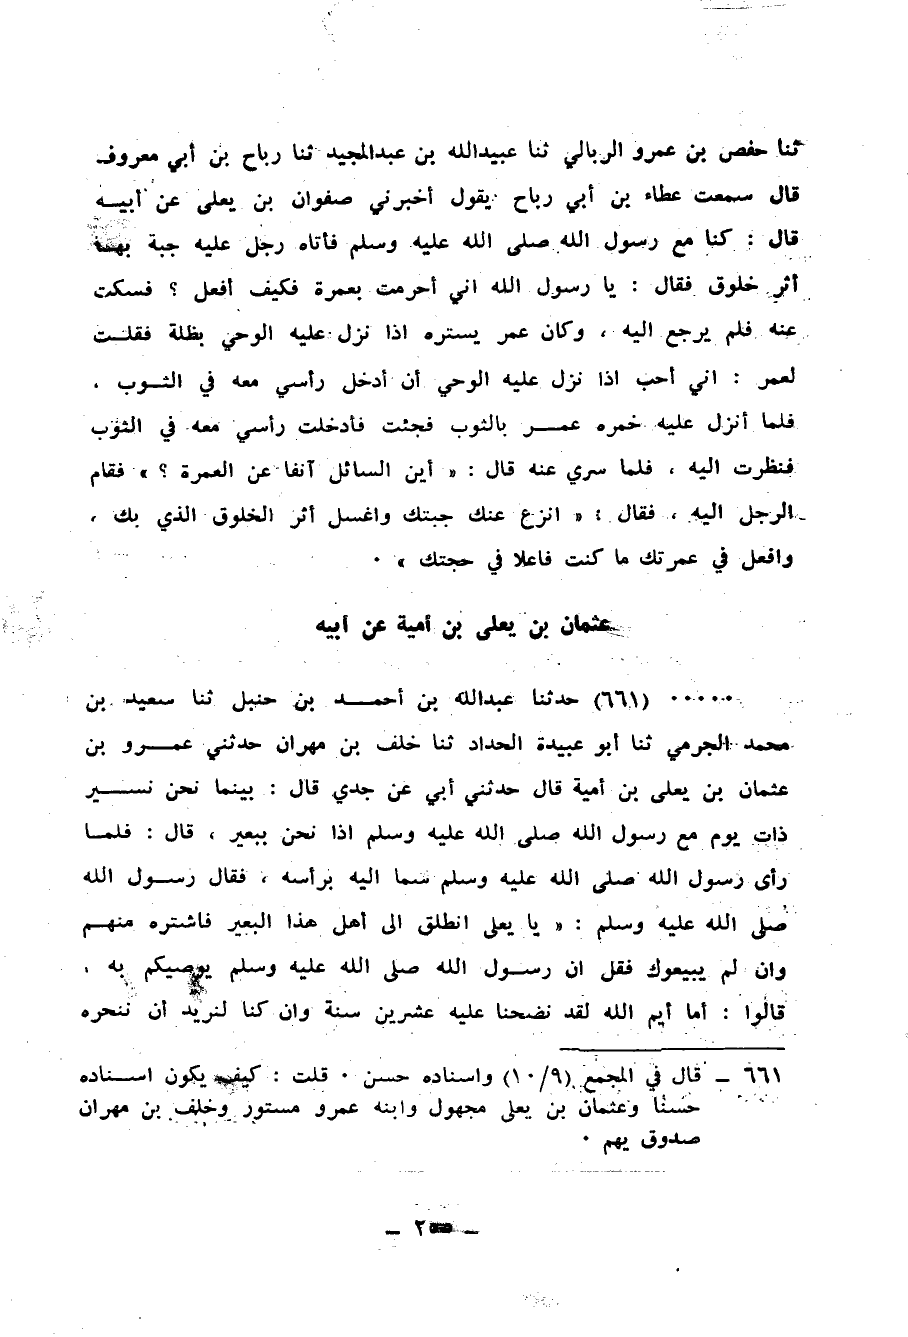 ثنا حفص بن عمرو الربالي ثنا عبيدالله بن عبدالمجيد ثنا رباح بن أبي معروف
قال سمعت عطاء بن أبي رباح يقول أخبرني صفوان بن يعلى عن أبيه
قال : كنا مع رسول الله صلى الله عليه وسلم فأتاه رجل عليه جبة بها
أثر خلوق فقال : يا رسول الله اني أحرمت بعمرة فكيف أفعل ؟ فسكت
عنه فلم يرجع اليه ، وكان عمر يستره اذا نزل عليه الوحي بظلة فقلت
لعمر : اني أحب اذا نزل عليه الوحي أن أدخل رأسي معه في الثوب ،
فلما أنزل عليه خمره عمر بالثوب فجئت فأدخلت رأسي معه في الثوب
فنظرت اليه ، فلما سري عنه قال : « أين السائل آنفا عن العمرة ؟ » فقام
الرجل اليه ، فقال : « انزع عنك جبتك واغسل أثر الخلوق الذي بك ،
وافعل في عمرتك ما كنت فاعلا في حجتك » ٠
عثمان بن يعلى بن أمية عن أبيه
٠٠٠٠٠ (٦٦١) حدثنا عبدالله بن أحمد بن حنبل ثنا سعيد بن
محمد الجرمي ثنا أبو عبيدة الحداد ثنا خلف بن مهران حدثني عمرو بن
عثمان بن يعلى بن أمية قال حدثني أبي عن جدي قال : بينما نحن نسير
ذات يوم مع رسول الله صلى الله عليه وسلم اذا نحن ببعير ، قال : فلما
رأى رسول الله صلى الله عليه وسلم سما اليه برأسه ، فقال رسول الله
صلى الله عليه وسلم : « يا يعلى انطلق الى أهل هذا البعير فاشتره منهم
وان لم يبيعوك فقل ان رسول الله صلى الله عليه وسلم يوصيكم به ،
قالوا : أما أيم الله لقد نضحنا عليه عشرين سنة وان كنا لنريد أن ننحره
٦٦١ – قال في المجمع (١٠/٩) واسناده حسن ٠ قلت : كيف يكون اسناده
حسنا وعثمان بن يعلى مجهول وابنه عمرو مستور وخلف بن مهران
صدوق يهم ٠